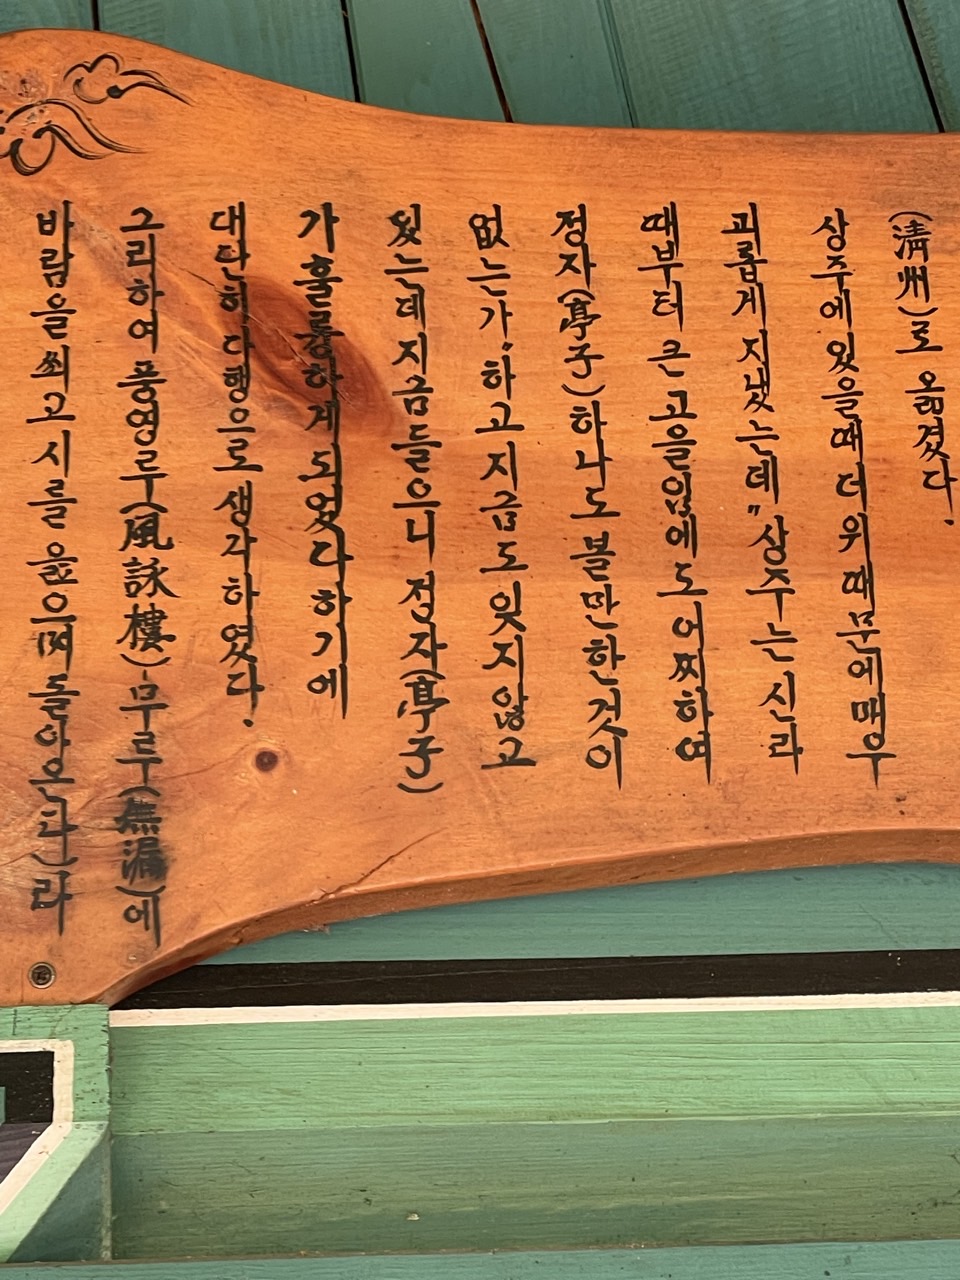 (淸州)로 옮겼다.
상주에 있을때 더위 때문에 매우
괴롭게 지냈는데 "상주는 신라
때부터 큰 고을인에도 어찌하여
정자(亭子)하나도 볼만한것이
없는가" 하고 지금도 잊지않고
있는데 지금들으니 정자(亭子)
가 훌륭하게 되었다 하기에
대단히 다행으로 생각하였다.
그리하여 풍영루(風詠樓) 무루(無漏)에
바람을 쐬고 시를 읊으며 돌아온다)라